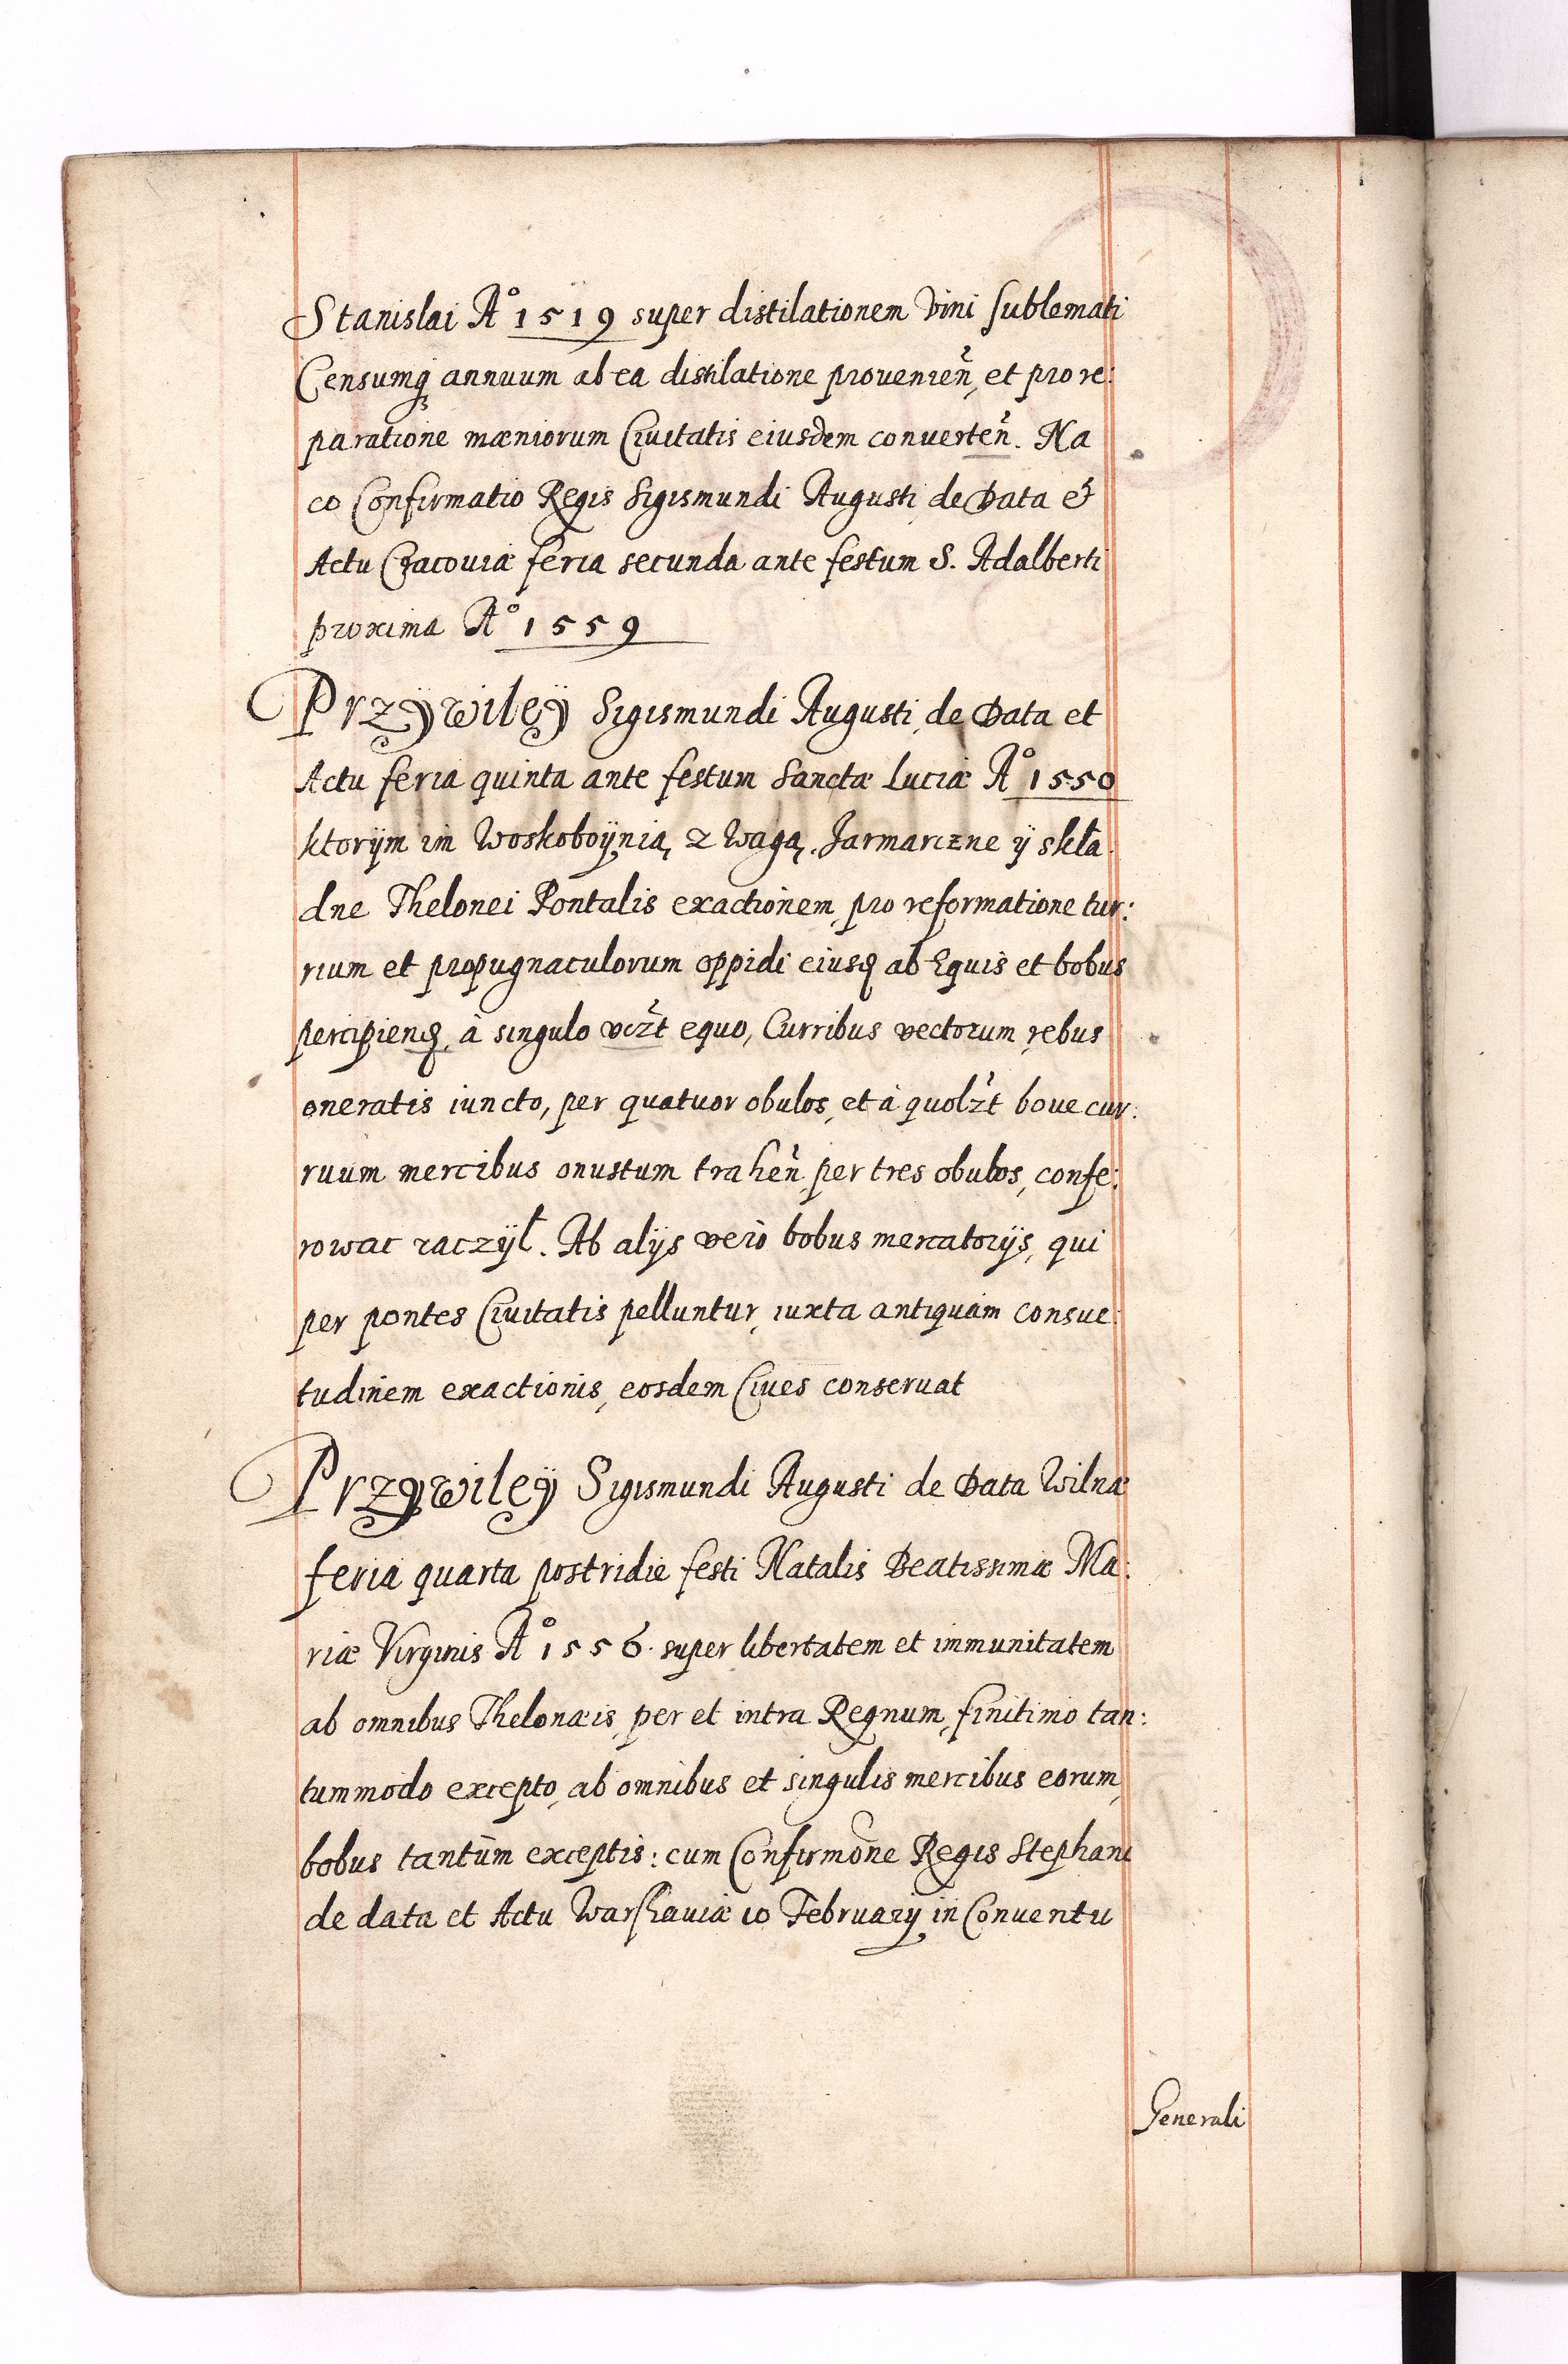 Stanislai A° 1519 super distilationem Vini sublemati
Censumq; annuum ab ea distilatione prouenien̄, et pro re:
paratione mæniorum Ciuitatis eiusdem conuerten̄. Na
co Confirmatio Regis Sigismundi Augusti de Data et
Actu Cracouiæ feria secunda ante festum S. Adalberti
proxima A° 1559
Przÿwileÿ Sigismundi Augusti, de Data et
Actu feria quinta ante festum Sanctæ Luciæ A° 1550
ktorÿm im Woskoboÿnią, z Wagą, Jarmarczne ÿ skła
dne Thelonei Pontalis exactionem, pro reformatione tur:
rium et propugnaculorum oppidi eiusd ab Equis et bobus
percipiend, à singulo vizt equo, Curribus vectorum, rebus
oneratis iuncto, per quatuor obulos, et à quolzt boue cur:
ruum mercibus onustum trahen̄, per tres obulos, confe:
rowac raczÿł. Ab alÿs verò bobus mercatorÿs, qui
per pontes Ciuitatis pelluntur, iuxta antiquam consue:
tudinem exactionis, eosdem Ciues conseruat
Przÿwileÿ Sigismundi Augusti de Data Wilnæ
feria quarta postridie festi Natalis Beatissimæ Ma:
riæ Virginis A° 1556. super libertatem et immunitatem
ab omnibus Thelonæis, per et intra Regnum, finitimo tan:
tummodo excepto, ab omnibus et singulis mercibus eorum,
bobus tantūm exceptis: cum Confirmōne Regis Stephani
de data et Actu Warshauiæ 10 Februarÿ in Conuentu
Generali